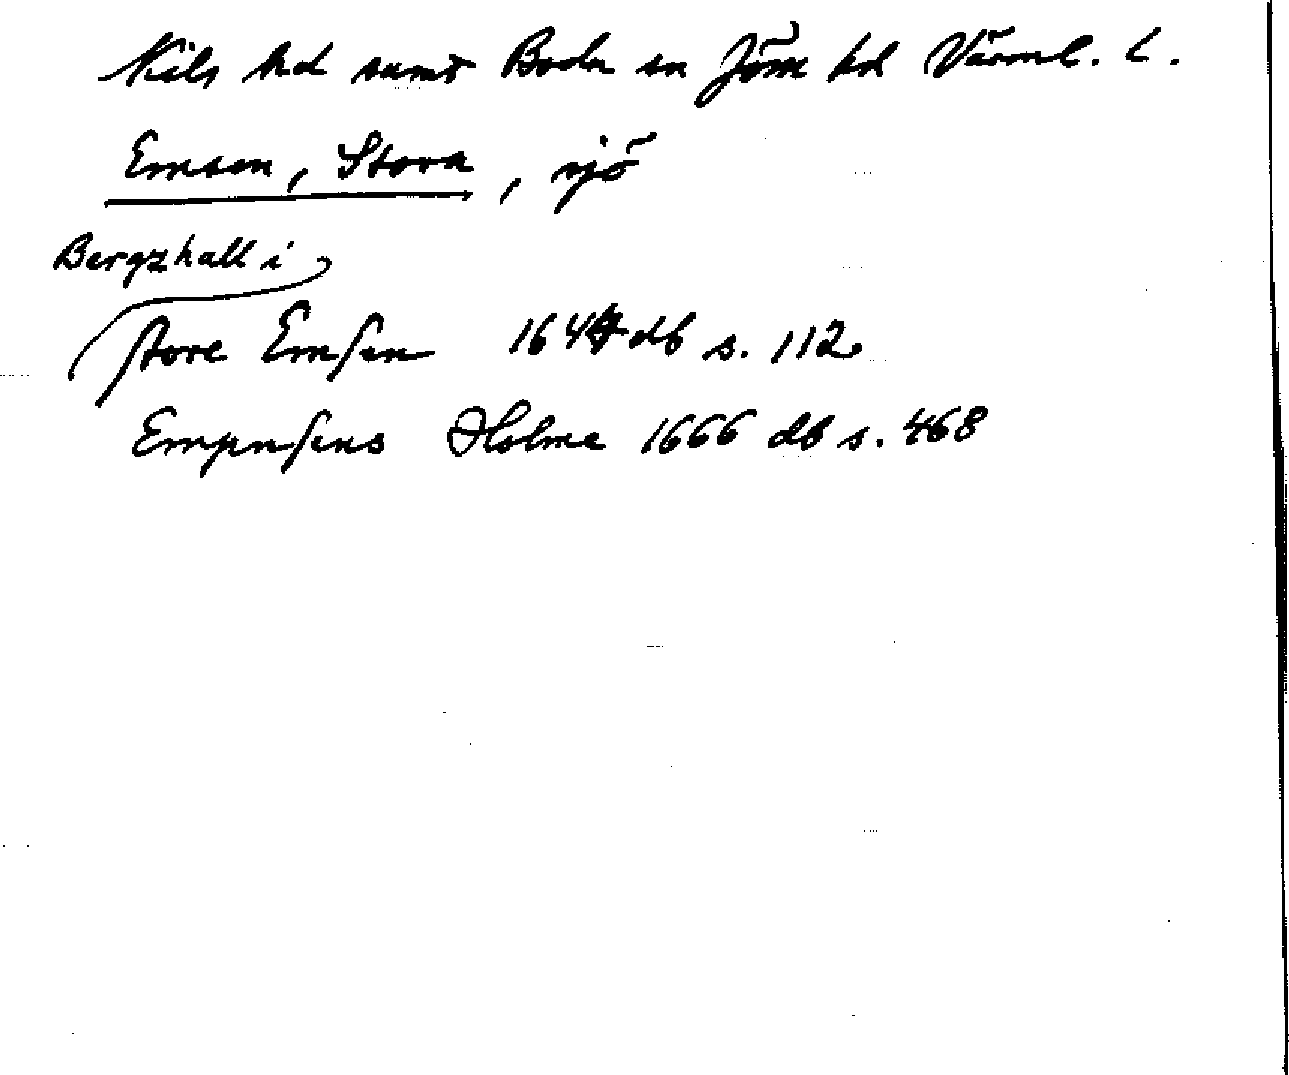 Nils hd samt Boda sn Jösse hd Värml. l.
Emsen, Stora, sjö
Bergzhall i
store Emsen 1644 db s. 112
Empnsens Holme 1666 db s. 468